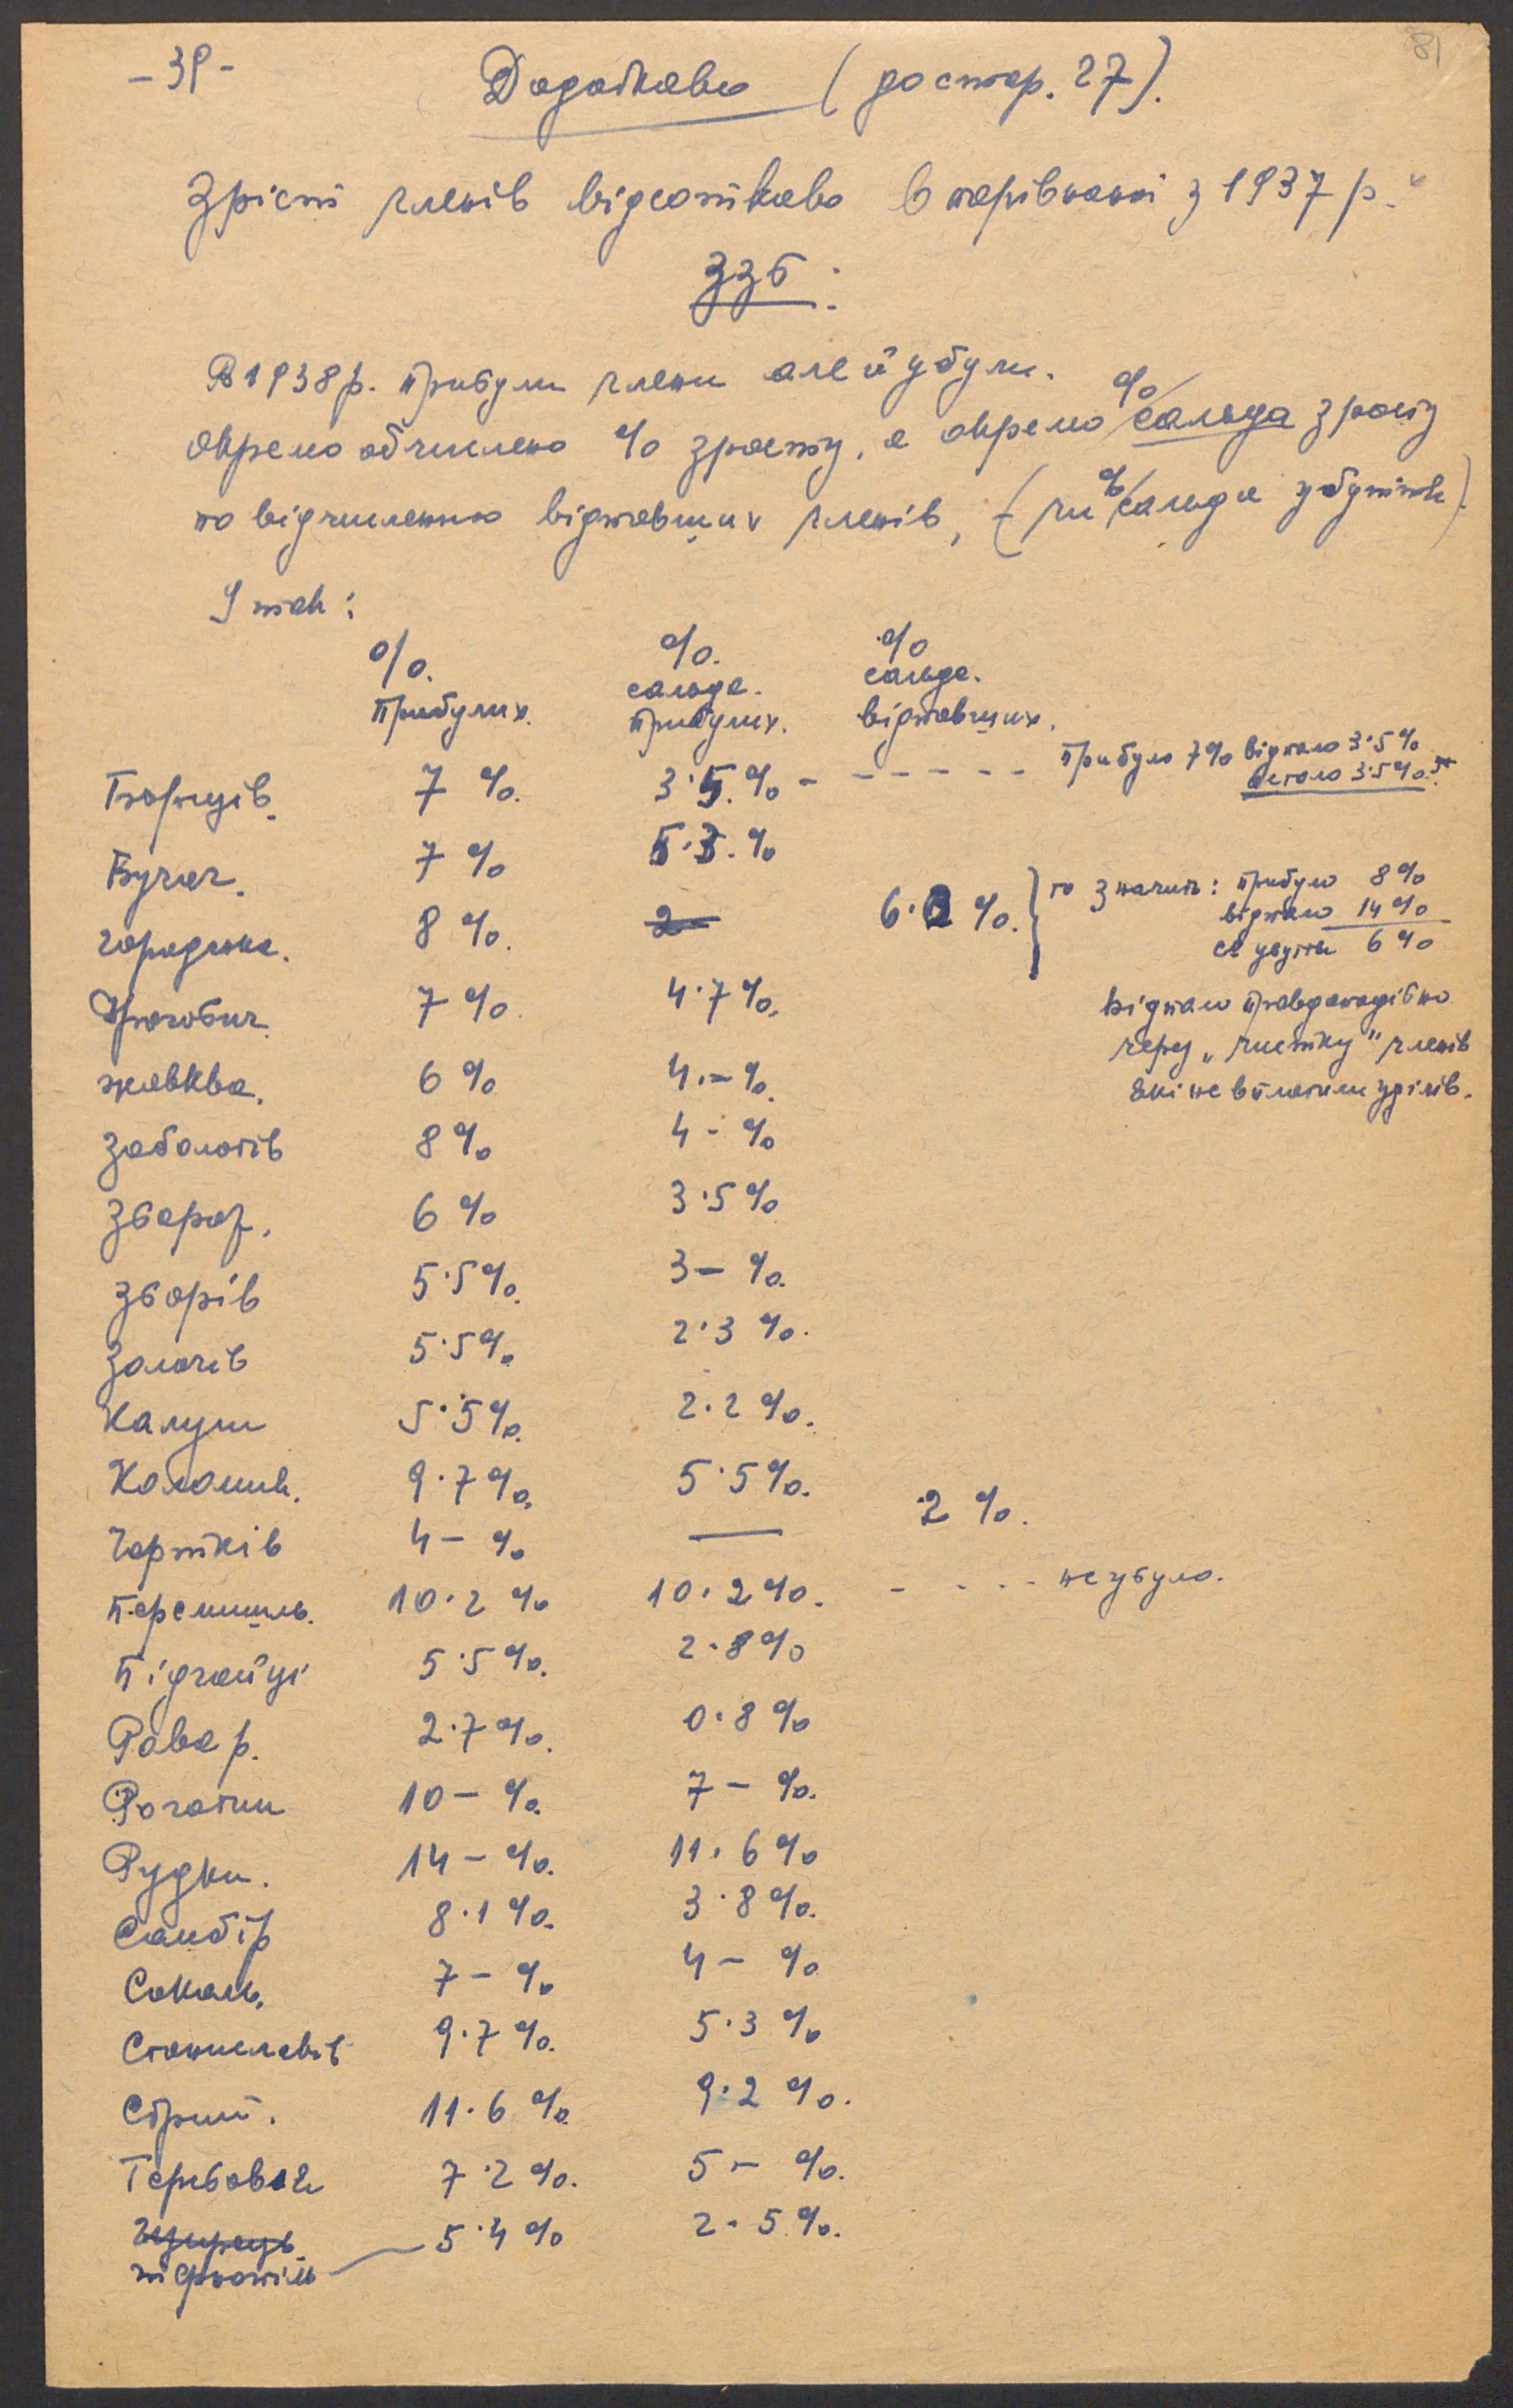 – 39 –
Додатково (до стор. 27).
Зрість членів відсотково в порівнанні з 1937 р.
ЗЗб:
В 1938 р. прибули члени але й убули.
Окремо обчислено % зросту, а окремо % сальда зросту
по відчисленню відпавших членів, (чи % сальда убутків).
І так:
%. %. %
прибулих. сальда. прибулих. сальда. відпавших.
Борщів. 7 %. 3·5.% - - - - - - прибуло 7% відпало 3·5 %
остало 3·5 %.
Бучач. 7 % 5·3.%
Городенка. 8 %. 6·2 %. } то значить: прибуло 8 %
відпало 14 %
убутки 6 %
Дрогобич. 7 % 4·7 %.
відпало правдоподібно
через „чистку" членів
які не вплатили уділів.
Жовква. 6 % 4.– %.
Заболотів 8 % 4 – %
Збараж. 6 % 3·5 %
Зборів 5·5 %. 3 – %.
Золочів 5·5 %. 2·3 %.
Калуш 5·5 %. 2·2 %.
Коломия. 9·7 %. 5·5 %.
Чортків 4 – % — 2 %.
Перемишль. 10·2 % 10·2 %. - - - - не убуло.
Підгайці 5·5 %. 2·8 %
Рава р. 2·7 %. 0·8 %
Рогатин 10 – %. 7 – %.
Рудки. 14 – %. 11·6 %
Самбір 8·1 %. 3·8 %.
Сокаль. 7 – % 4 – %
Станиславів 9·7 %. 5·3 %
Стрий. 11·6 % 9·2 %.
Теребовля 7·2 %. 5 – %.
5·4 % 2·5 %.
тернопіль